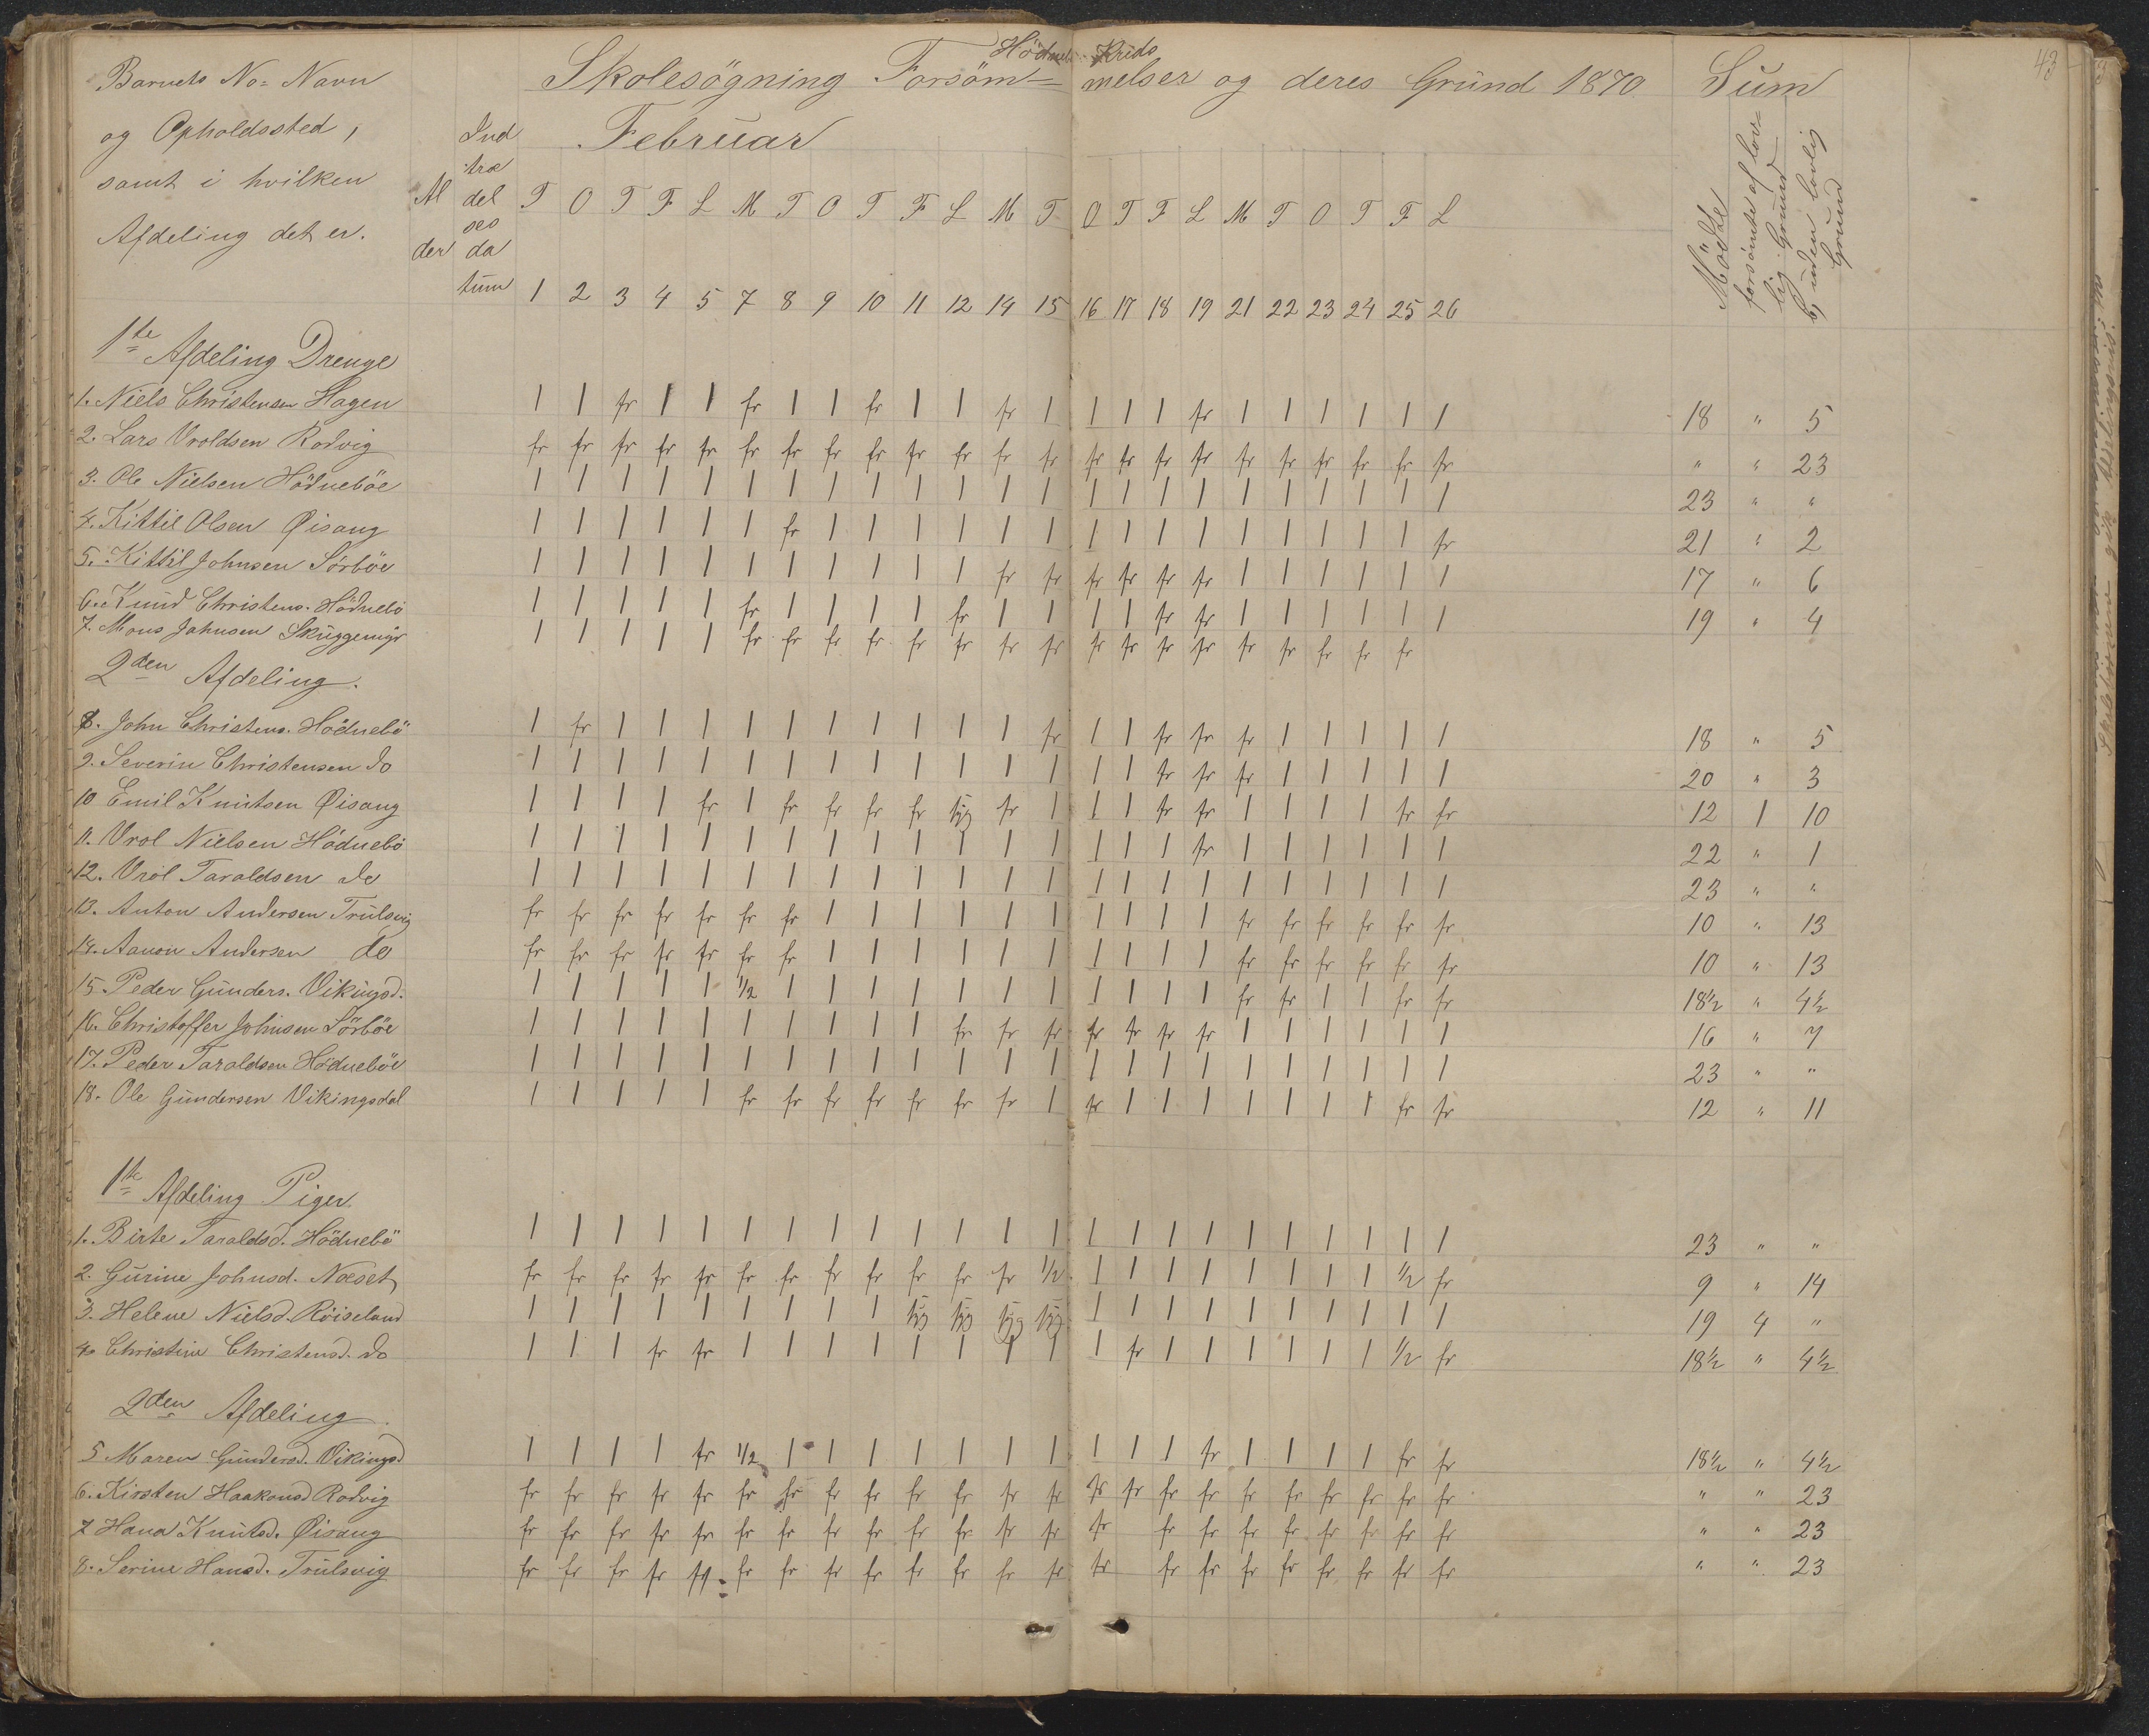 43
Hödneb Kreds
Barnets No= Navn
og Opholdssted,
samt i hvilken
Afdeling det er.
Al
der
Ind
træ
del
ses
da
tum
Skolesøgning Forsöm= melser og deres Grund 1870
Sum
Februar
Mödte
forsömte af lov=
lig Grund
b, uden lovlig
Grund
T O T F L M T O T F L M T O T F L M T O T F L
1 2 3 4 5 7 8 9 10 11 12 14 15 16 17 18 19 21 22 23 24 25 26
1te Afdeling Drenge
1. Niels Christensen Hagen 1 1 fr 1 1 fr 1 1 fr 1 1 fr 1 1 1 1 fr 1 1 1 1 1 1 18 " 5
2. Lars Vroldsen Rodvig fr fr fr fr fr fr fr fr fr fr fr fr fr fr fr fr fr fr fr fr fr fr fr " " 23
3. Ole Nielsen Hödneböe 1 1 1 1 1 1 1 1 1 1 1 1 1 1 1 1 1 1 1 1 1 1 1 23 " "
4. Kittil Olsen Øisang 1 1 1 1 1 1 fr 1 1 1 1 1 1 1 1 1 1 1 1 1 1 1 fr 21 " 2
5. Kittil Johnsen Sörböe 1 1 1 1 1 1 1 1 1 1 1 fr fr fr fr fr fr 1 1 1 1 1 1 17 " 6
6. Knud Christens. Hödnebö 1 1 1 1 1 fr 1 1 1 1 fr 1 1 1 1 fr fr 1 1 1 1 1 1 19 " 4
7. Mons Johnsen Skuggemyr 1 1 1 1 1 fr fr fr fr fr fr fr fr fr fr fr fr fr fr fr fr fr
2den Afdeling.
8. John Christens. Hödnebö 1 fr 1 1 1 1 1 1 1 1 1 1 fr 1 1 fr fr fr 1 1 1 1 1 18 " 5
9. Severin Christensen do 1 1 1 1 1 1 1 1 1 1 1 1 1 1 1 fr fr fr 1 1 1 1 1 20 " 3
10 Emil Knutsen Øisang 1 1 1 1 fr 1 fr fr fr fr syg fr 1 1 1 fr fr 1 1 1 1 fr fr 12 1 10
11. Vrol Nielsen Hödnebö 1 1 1 1 1 1 1 1 1 1 1 1 1 1 1 1 fr 1 1 1 1 1 1 22 " 1
12. Vrol Taraldsen do 1 1 1 1 1 1 1 1 1 1 1 1 1 1 1 1 1 1 1 1 1 1 1 23 " "
13. Anton Andersen Trulsvig fr fr fr fr fr fr fr 1 1 1 1 1 1 1 1 1 1 fr fr fr fr fr fr 10 " 13
14. Aanon Andersen do fr fr fr fr fr fr fr 1 1 1 1 1 1 1 1 1 1 fr fr fr fr fr fr 10 " 13
15. Peder Gunders. Vikingsd. 1 1 1 1 1 1/2 1 1 1 1 1 1 1 1 1 1 1 fr fr 1 1 fr fr 18 1/2 " 4 1/2
16. Christoffer Johnsen Sörböe 1 1 1 1 1 1 1 1 1 1 fr fr fr fr fr fr fr 1 1 1 1 1 1 16 " 7
17. Peder Taraldsen Hödneböe 1 1 1 1 1 1 1 1 1 1 1 1 1 1 1 1 1 1 1 1 1 1 1 23 " "
18. Ole Gundersen Vikingsdal 1 1 1 1 1 fr fr fr fr fr fr fr 1 fr 1 1 1 1 1 1 1 fr fr 12 " 11
1te Afdeling Piger
1. Birte Taraldsd. Hödnebö 1 1 1 1 1 1 1 1 1 1 1 1 1 1 1 1 1 1 1 1 1 1 1 23 " "
2. Gurine Johnsd. Næset fr fr fr fr fr fr fr fr fr fr fr fr 1/2 1 1 1 1 1 1 1 1 1/2 fr 9 " 14
3. Helene Nielsd. Röiseland 1 1 1 1 1 1 1 1 1 syg syg syg syg 1 1 1 1 1 1 1 1 1 1 19 4 "
4. Christine Christensd. do 1 1 1 fr fr 1 1 1 1 1 1 1 1 1 fr 1 1 1 1 1 1 1/2 fr 18 1/2 " 4 1/2
2den Afdeling
5 Maren Gundersd. Vikingsd 1 1 1 1 fr 1/2 1 1 1 1 1 1 1 1 1 1 fr 1 1 1 1 fr fr 18 1/2 " 4 1/2
6. Kirsten Haakonsd Rodvig fr fr fr fr fr fr fr fr fr fr fr fr fr fr fr fr fr fr fr fr fr fr fr " " 23
7 Hana Knutsd. Øisang fr fr fr fr fr fr fr fr fr fr fr fr fr fr fr fr fr fr fr fr fr fr " " 23
8. Serine Hansd. Trulsvig fr fr fr fr fr fr fr fr fr fr fr fr fr fr fr fr fr fr fr fr fr fr " " 23